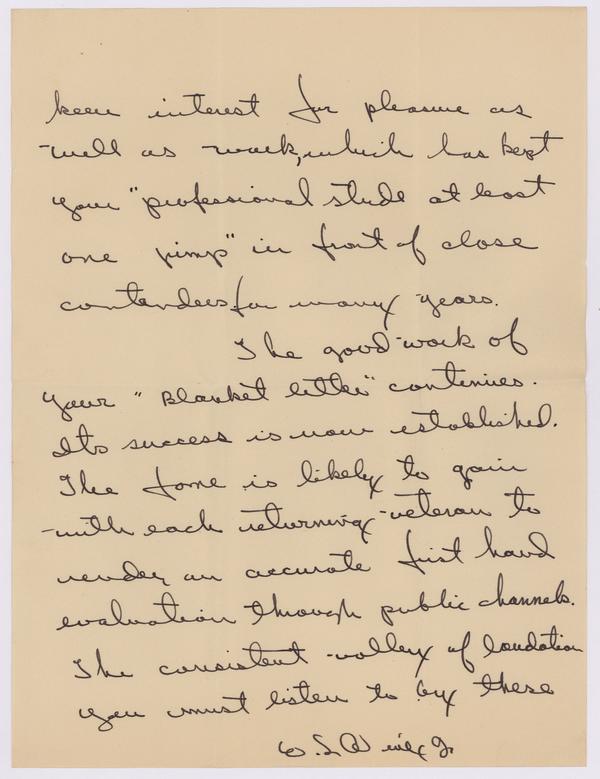 keen interest for pleasure as
well as work, which has kept
your "professional stude at least
one jump" in front of close
contenders for many years.
The good work of
your "Blanket letter" continues.
Its success is now established.
The fame is likely to gain
with each returning veteran to
render an accurate first hand
evaluation through public channels.
The consistent volley of laudation
you must listen to by these